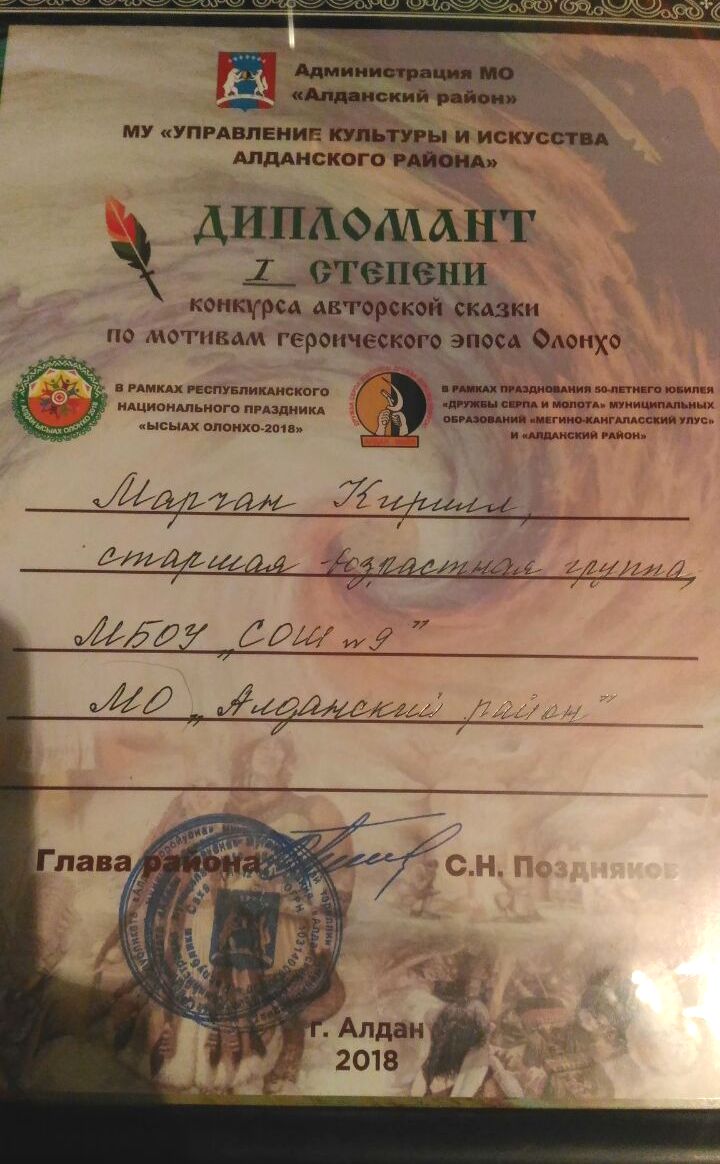 Администрация МО
«Алданский район»
МУ «УПРАВЛЕНИЕ КУЛЬТУРЫ И ИСКУССТВА
АЛДАНСКОГО РАЙОНА»
ДИПЛОМАНТ
I СТЕПЕНИ
конкурса авторской сказки
по мотивам героического эпоса Олонхо
В РАМКАХ РЕСПУБЛИКАНСКОГО
НАЦИОНАЛЬНОГО ПРАЗДНИКА
«ЫСЫАХ ОЛОНХО-2018»
В РАМКАХ ПРАЗДНОВАНИЯ 50-ЛЕТНЕГО ЮБИЛЕЯ
«ДРУЖБЫ СЕРПА И МОЛОТА» МУНИЦИПАЛЬНЫХ
ОБРАЗОВАНИЙ «МЕГИНО-КАНГАЛАССКИЙ УЛУС»
И «АЛДАНСКИЙ РАЙОН»
Марчан Кирилл,
старшая возрастная группа,
МБОУ „СОШ №9"
МО „Алданский район"
Глава района
С.Н. Поздняков
г. Алдан
2018